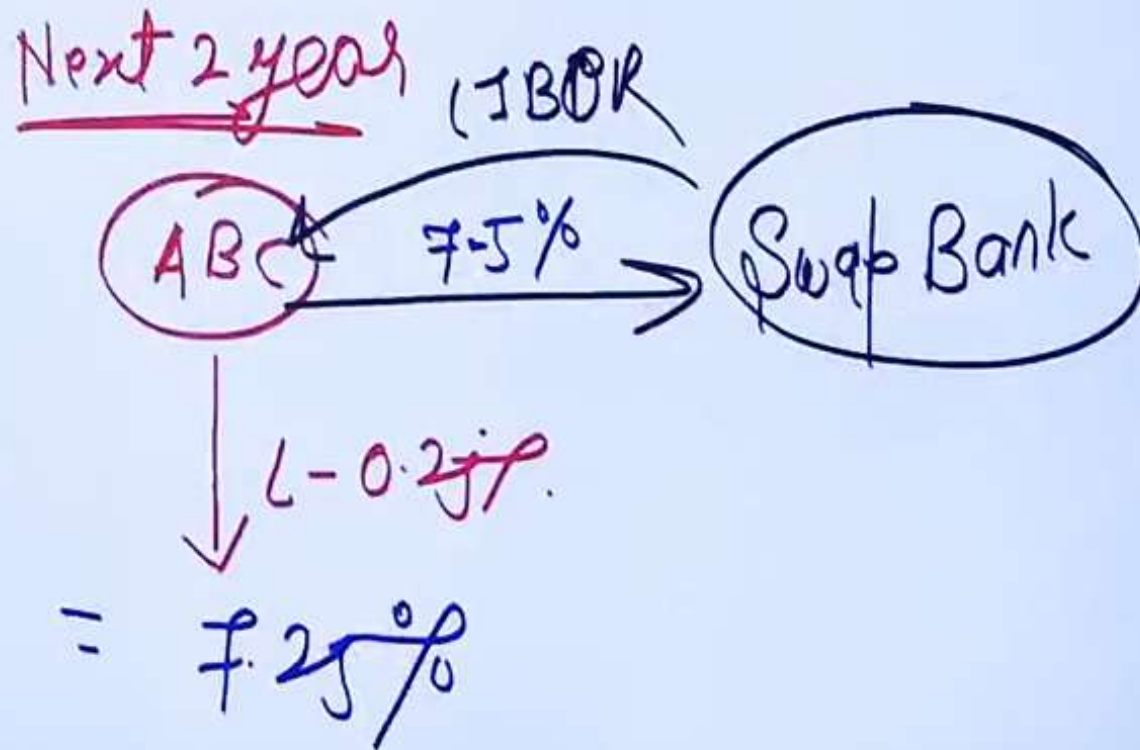 Next 2 year
LIBOR
ABC
7.5%
Swap Bank
L - 0.25%.
= 7.25%